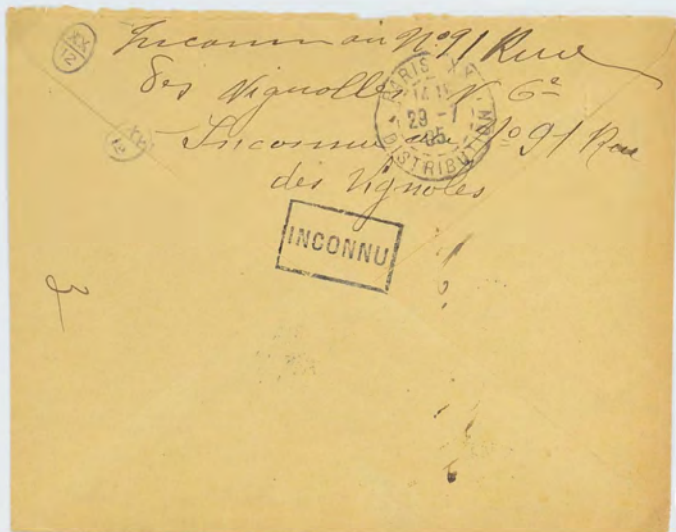 XX
12
Inconnu au Nº 91 Rue
des Vignolles N 6e
PARIS XX
14 15
29 - 1
05
DISTRIBUTION
XX
12
Inconnu au Nº 91 Rue
des Vignoles
INCONNU
3